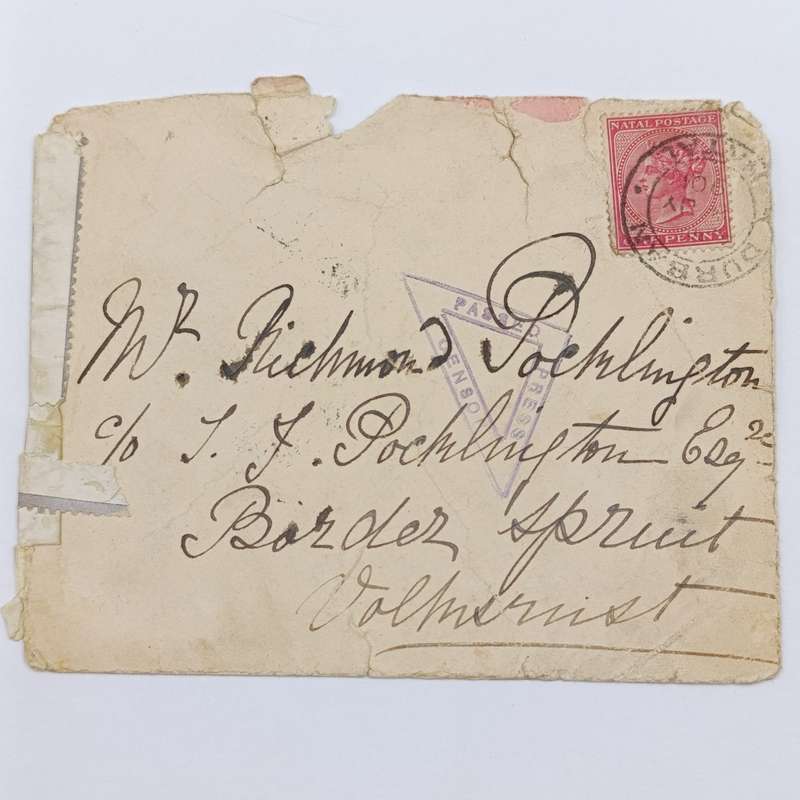 NATAL POSTAGE
ONE PENNY
DURBAN
PASSED PRESS CENSOR
Mr. Richmond Pocklington
c/o S. F. Pocklington Esqre
Border Spruit
Volksrust